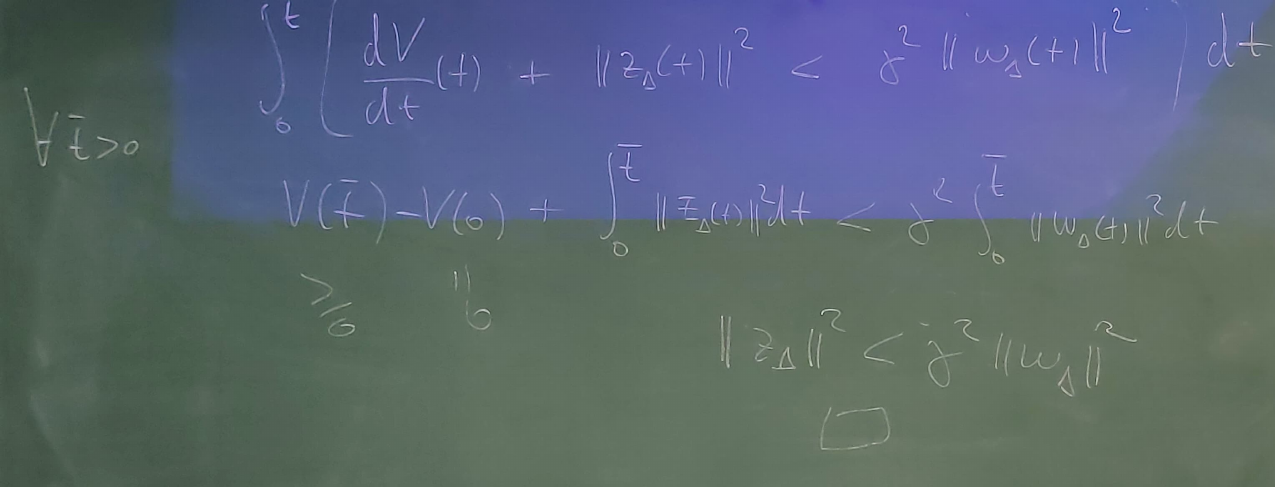 ∫₀^t [ dV/dt (t) + ||z_Δ(t)||² < γ² ||w_Δ(t)||² ] dt
∀ t̄>0
V(t̄) - V(0) + ∫₀^t̄ ||z_Δ(t)||² dt < γ² ∫₀^t̄ ||w_Δ(t)||² dt
≥0 =0
||z_Δ||² < γ² ||w_Δ||²
□